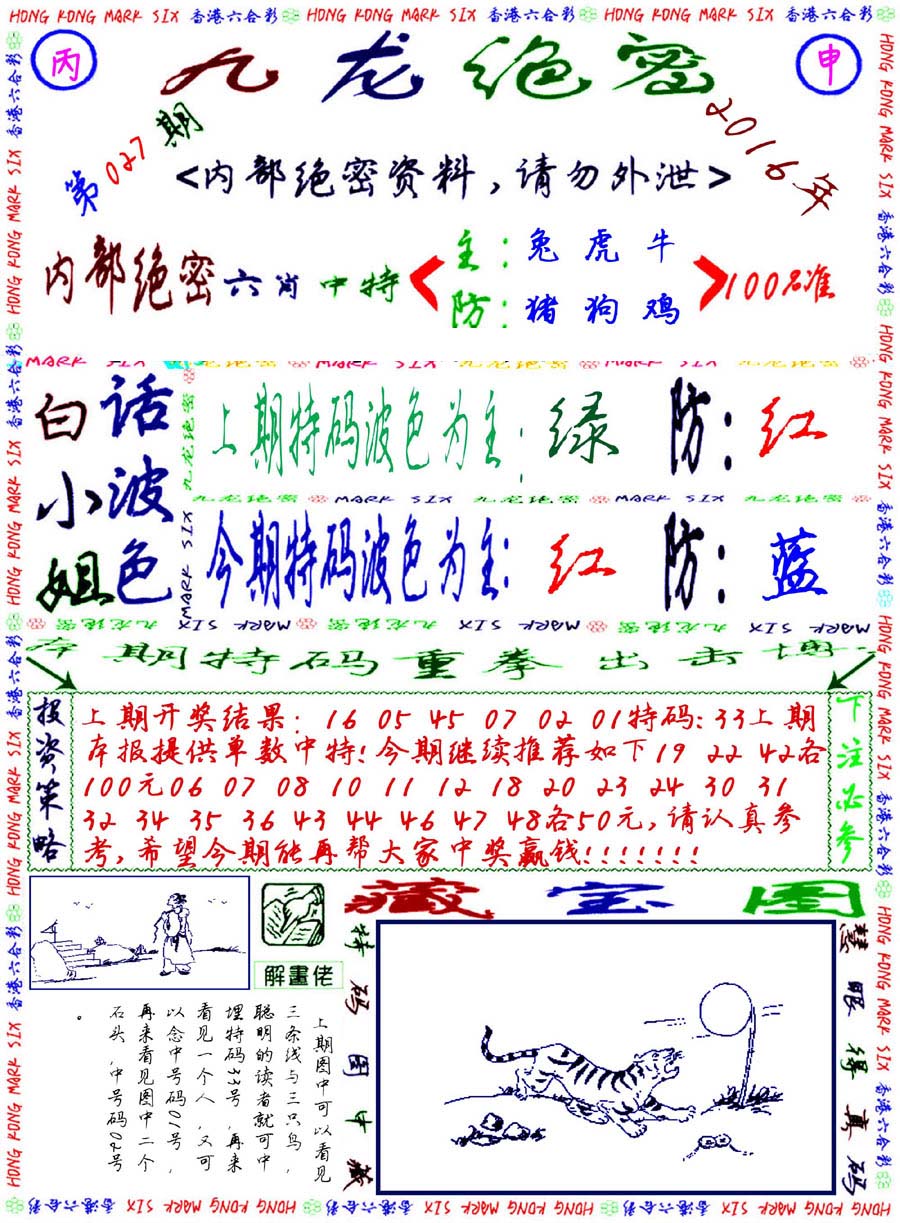 HONG KONG MARK SIX 香港六合彩 HONG KONG MARK SIX 香港六合彩 HONG KONG MARK SIX 香港六合彩
丙 九龙绝密 申
第027期 2016年
<内部绝密资料,请勿外泄>
内部绝密六肖中特
主:兔虎牛
防:猪狗鸡
100%准
白小姐
话波色
上期特码波色为主:绿 防:红
九龙绝密 MARK SIX 九龙绝密 MARK SIX 九龙绝密
今期特码波色为主:红 防:蓝
期特码重拳出击
投资策略
上期开奖结果: 16 05 45 07 02 01特码:33上期
本报提供单数中特!今期继续推荐如下19 22 42各
100元06 07 08 10 11 12 18 20 23 24 30 31
32 34 35 36 43 44 46 47 48各50元,请认真参
考,希望今期能再帮大家中奖赢钱!!!!!!!
下注必参
解畫佬
藏宝图
上期图中可以看见
三条线与三只鸟,
聪明的读者就可中
埋特码33号,再来
看见一个人,又可
以念中号码01号,
再来看见图中二个
石头,中号码02号
。
特码图中藏
慧眼得真码